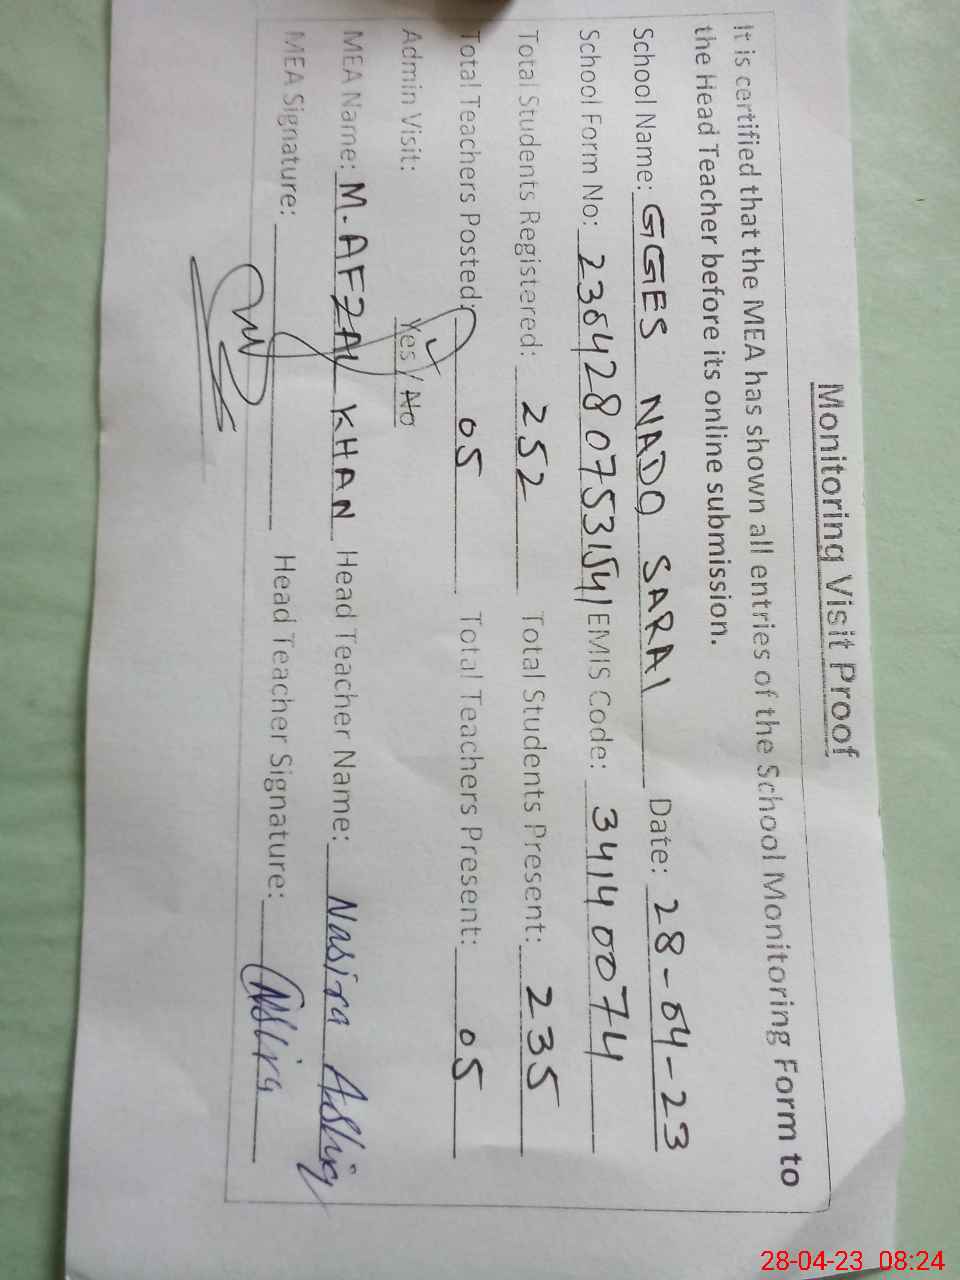 Monitoring Visit Proof
It is certified that the MEA has shown all entries of the School Monitoring Form to
the Head Teacher before its online submission.
School Name: GGES NADO SARAI Date: 28-04-23
School Form No: 23642807531541 EMIS Code: 34140074
Total Students Registered: 252 Total Students Present: 235
Total Teachers Posted: 05 Total Teachers Present: 05
Admin Visit: Yes / No
MEA Name: M. AFZAL KHAN Head Teacher Name: Nasira Ashiq
MEA Signature: Head Teacher Signature: Nasira
28-04-23 08:24